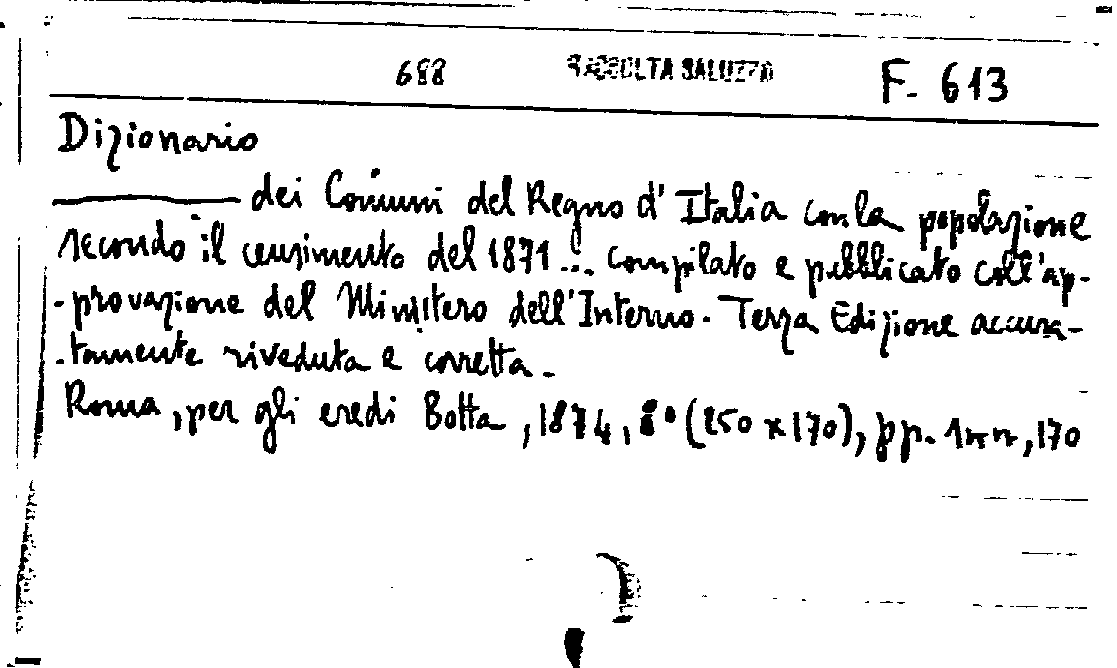 688 RACCOLTA SALUZZO F. 613
Dizionario
dei Comuni del Regno d'Italia con la popolazione
secondo il censimento del 1871... compilato e pubblicato coll'ap-
-provazione del Ministero dell'Interno. Terza Edizione accura-
-tamente riveduta e corretta.
Roma, per gli eredi Botta, 1874, 8° (250 x 170), pp. 1nn, 170